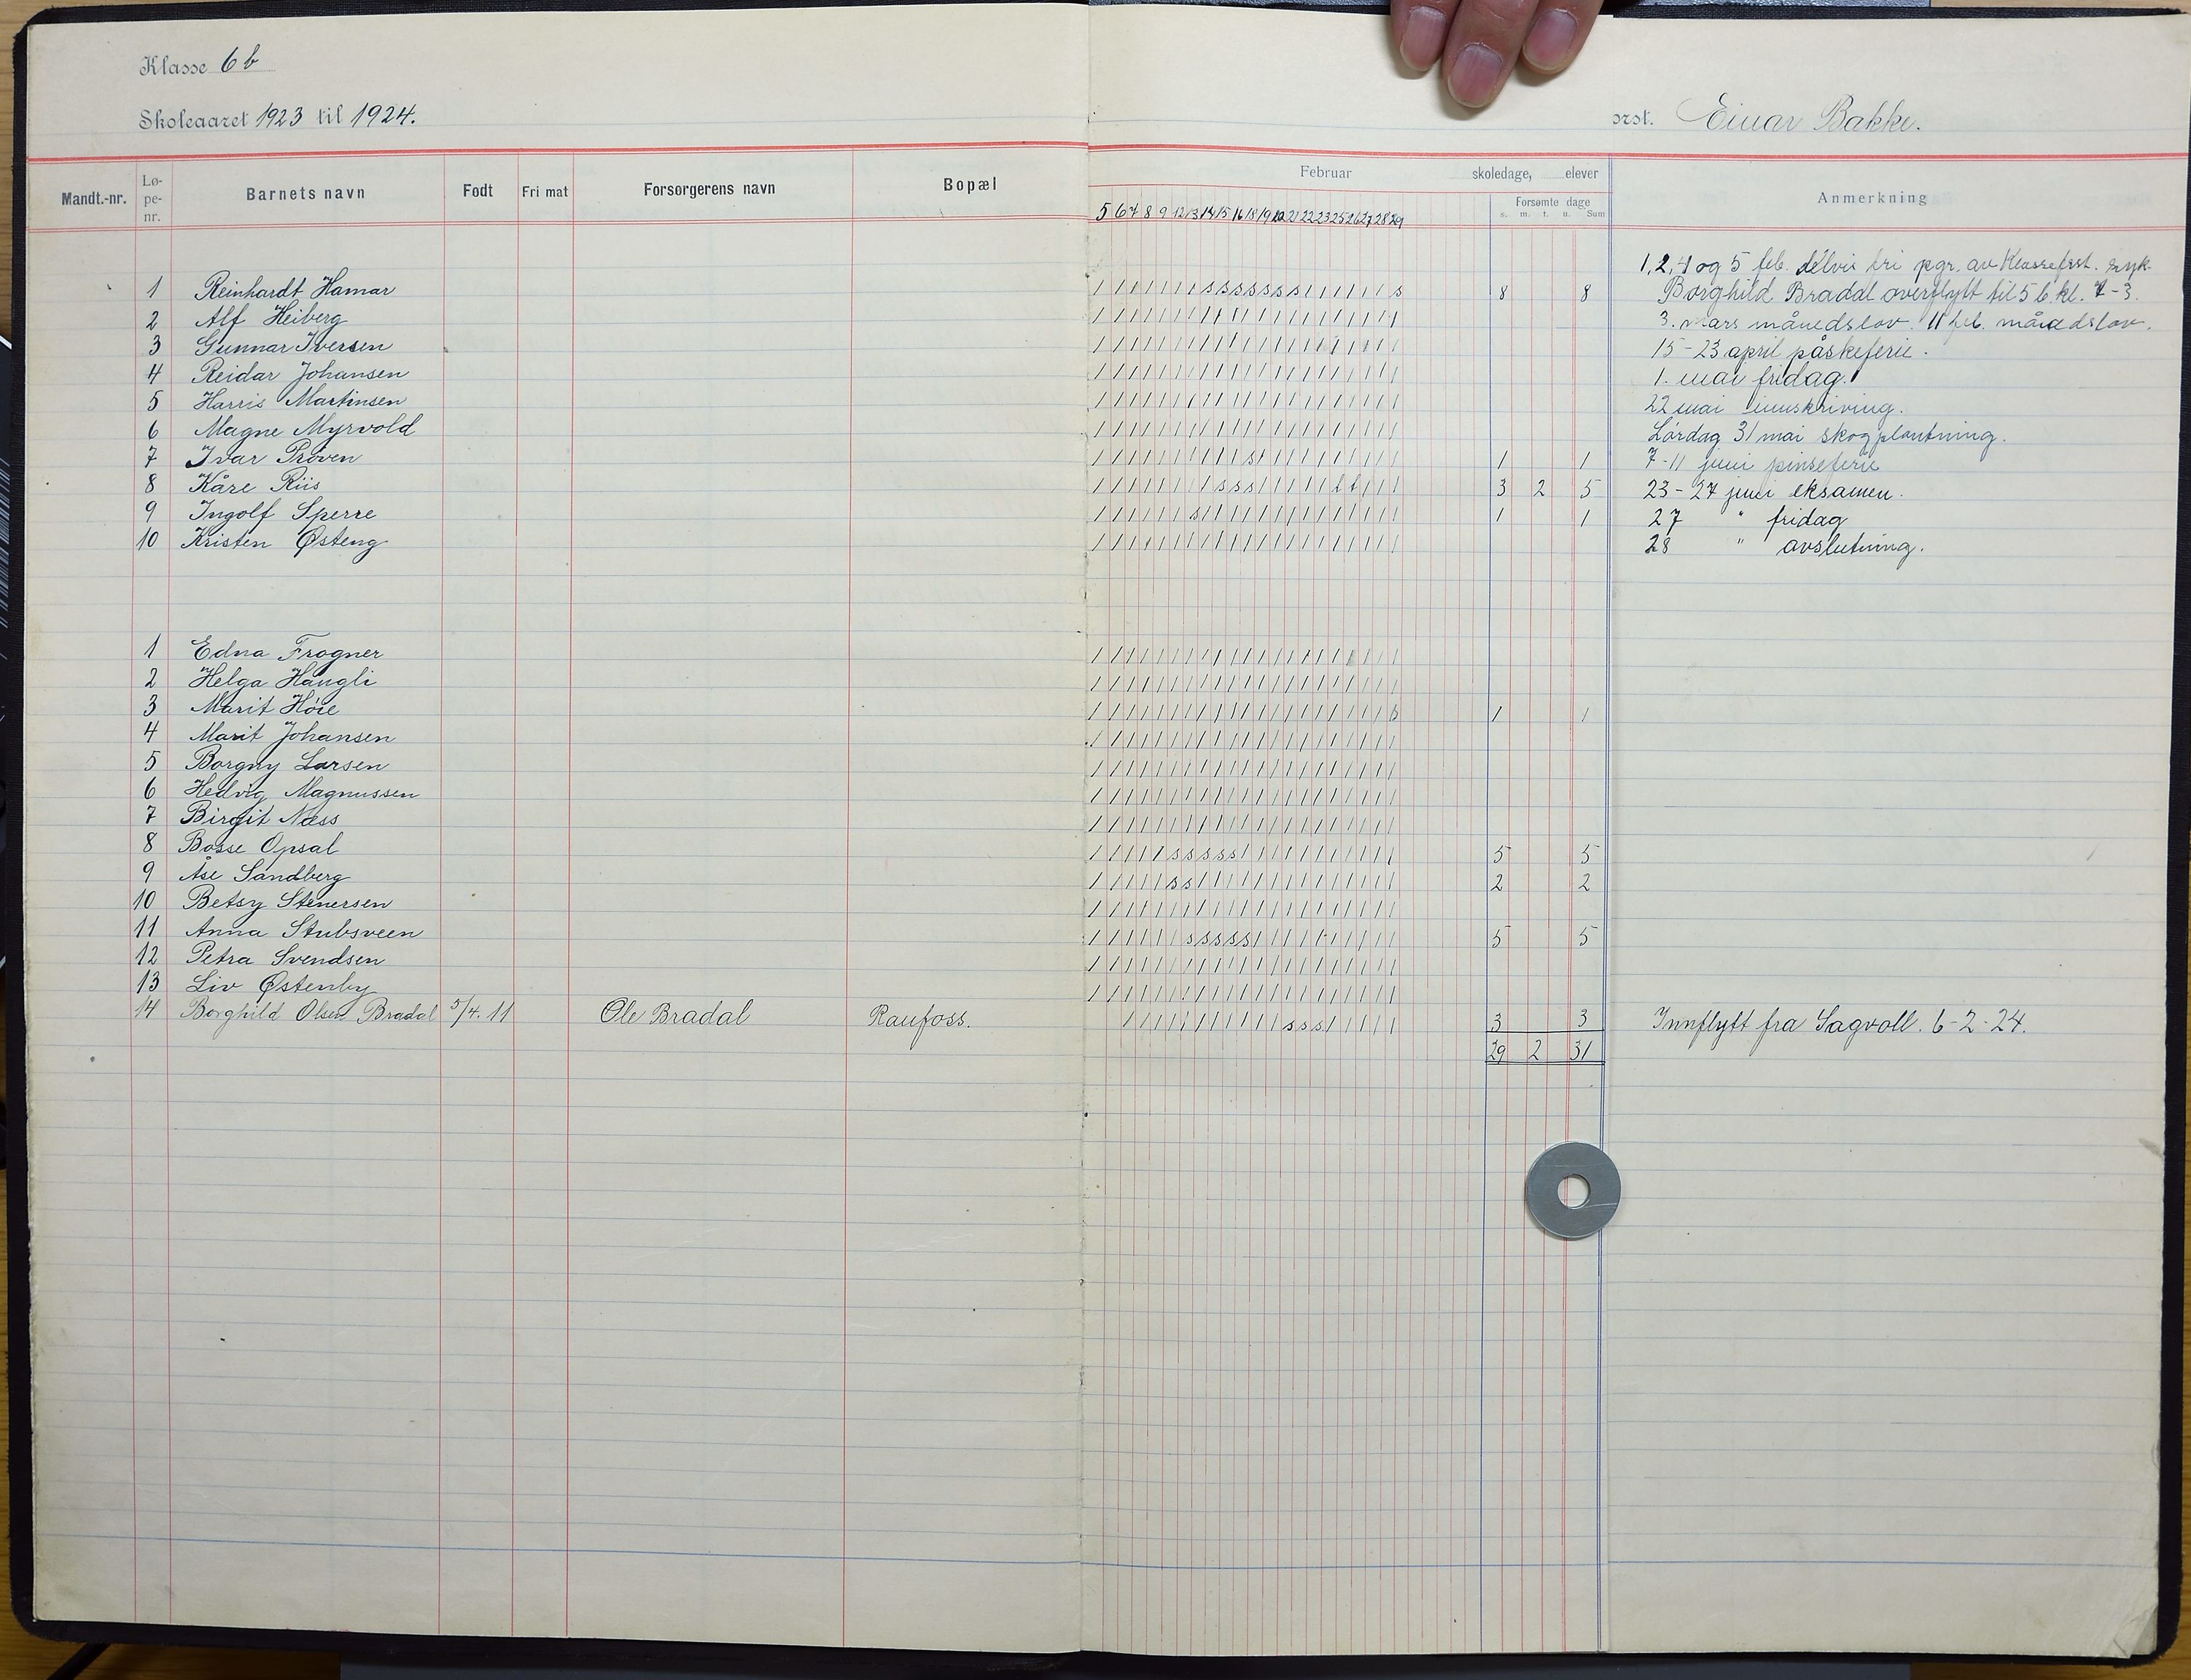 Klasse 6 b
Skoleaaret 1923 til 1924.
orst. Einar Bakke.
Mandt.-nr. Lø-pe-nr. Barnets navn Født Fri mat Forsørgerens navn Bopæl
Februar skoledage, elever
Forsømte dage
s. m. t. u. Sum
Anmerkning
5 6 7 8 9 12 13 14 15 16 18 19 20 21 22 23 25 26 27 28 29
1, 2, 4 og 5 feb. delvis fri pgr. av Klasseforst. syk.
1 Reinhardt Hamar / / / / / / / / s s s s s s s / / / / / s 8 8 Borghild Bradal overflytt til 5 b kl. 7-3.
2 Alf Heiberg 3. mars månedslov. 11 feb. månedslov.
3 Gunnar Iversen 15-23 april påskeferie.
4 Reidar Johansen 1. mai fridag.
5 Harris Martinsen 22 mai innskriving.
6 Magne Myrvold Lørdag 31 mai skogplantning.
7 Ivar Prøven 1 1 7-11 juni pinseferie
8 Kåre Riis 3 2 5 23-27 juni eksamen.
9 Ingolf Sperre 1 1 27 " fridag
10 Kristen Østeng 28 " avslutning.
1 Edna Frogner
2 Helga Haugli
3 Marit Höie 1 1
4 Marit Johansen
5 Borgny Larsen
6 Hedvig Magnussen
7 Birgit Næss
8 Bosse Opsal 5 5
9 Åse Sandberg 2 2
10 Betsy Stenersen
11 Anna Stubsveen 5 5
12 Petra Svendsen
13 Liv Østenby
14 Borghild Olsen Bradal 5/4. 11 Ole Bradal Raufoss. 3 3 Innflytt fra Sagvoll. 6-2-24.
29 2 31